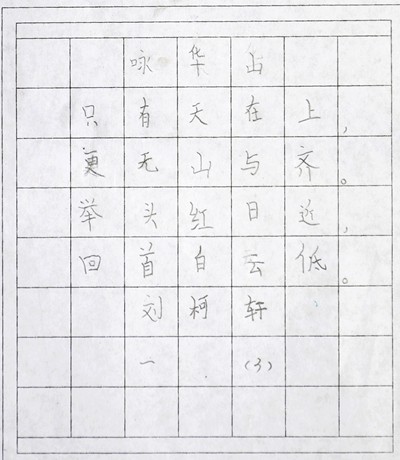 咏华山
只有天在上，
更无山与齐。
举头红日近，
回首白云低。
刘柯轩
一 (3)